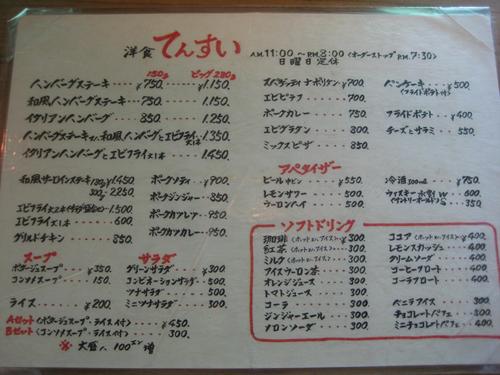 洋食 てんすい
A.M.11:00〜P.M.8:00 (オーダーストップ P.M.7:30)
日曜日定休
150g ビッグ230g
ハンバーグステーキ ¥750. 1.150
和風ハンバーグステーキ 750. 1.150
イタリアンハンバーグ 850. 1.250
ハンバーグステーキ又ハ和風ハンバーグとエビフライ大1本 1.350
イタリアンハンバーグとエビフライ大1本 1.450
スパゲッティナポリタン ¥700
エビピラフ 700
ポークカレー 750.
エビグラタン 800
ミックスピザ 850.
パンケーキ ¥500
(フライドポテト付)
フライドポテト ¥400
チーズとサラミ 550.
和風サーロインステーキ 180g ¥1.450
300g 2.250
1.500
エビフライ大1本 600.
グリルドチキン 850.
ポークソティ ¥900
ポークジンジャー 850.
ポークカツレツ 950.
ポークカツカレー 950.
アペタイザー
ビール ¥550
レモンサワー 500.
ウーロンハイ 500.
冷酒 300ml ¥750.
ウィスキー水割 W 600
S 350.
スープ
ポタージュスープ ¥350
コンソメスープ 150.
ライス ¥200
サラダ
グリーンサラダ ¥300
コンビネーションサラダ 500
ツナサラダ 500.
ミニツナサラダ 300.
Aセット(ポタージュスープ・ライス付) ¥450
Bセット(コンソメスープ・ライス付) 300
※ 大盛ハ 100エン増
ソフトドリンク
珈琲(ホット又ハアイス) ¥300
紅茶(ホット又ハアイス) 300
ミルク(ホット又ハアイス) 300
アイスウーロン茶 300
オレンジジュース 300
トマトジュース 300.
コーラ 300.
ジンジャーエール 300.
メロンソーダ 300.
ココア(ホット又ハアイス) ¥400
レモンスカッシュ 400
クリームソーダ 400
コーヒーフロート 400
コーラフロート 400.
バニラアイス 300.
チョコレートパフェ 500.
ミニチョコレートパフェ 400.